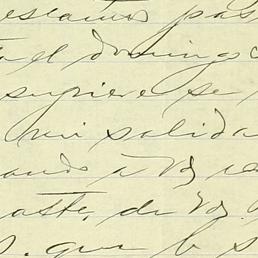 estamos pas
ta el domingo
supiere se
mi salida
ando a Vd re
aste, de Vd.
s. que b s